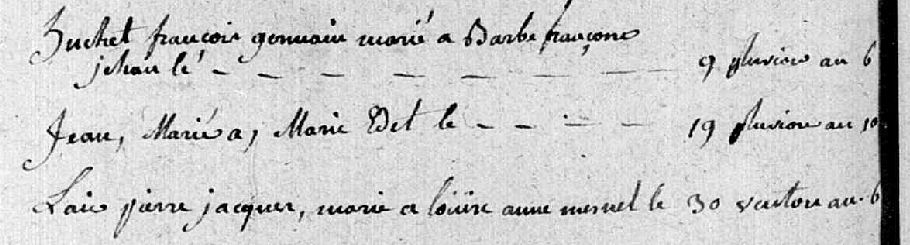 Huchet françois germain marié a Barbe françoise
jehan le - - - - - - - 9 pluviose an 6
Jean, Marié a, Marie Edet le - - - - 19 pluviose an 10
Laic pierre jacques, marié a louise anne mesnel le 30 ventose an 6